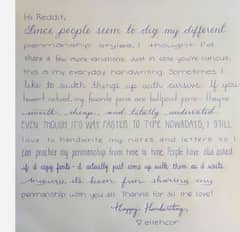 Hi Reddit,
Since people seem to dig my different
penmanship styles, I thought I'd
share a few more variations. Just in case you're curious,
this is my everyday handwriting. Sometimes I
like to switch things up with cursive. If you
haven't noticed, my favorite pens are ballpoint pens - they're
smooth, cheap, and totally underrated.
EVEN THOUGH IT'S WAY FASTER TO TYPE NOWADAYS, I STILL
love to handwrite my notes and letters so I
can practice my penmanship from time to time. People have also asked
if I copy fonts - I actually just come up with them as I write.
Anyway, it's been fun sharing my
penmanship with you all. Thanks for all the love!
Happy Handwriting,